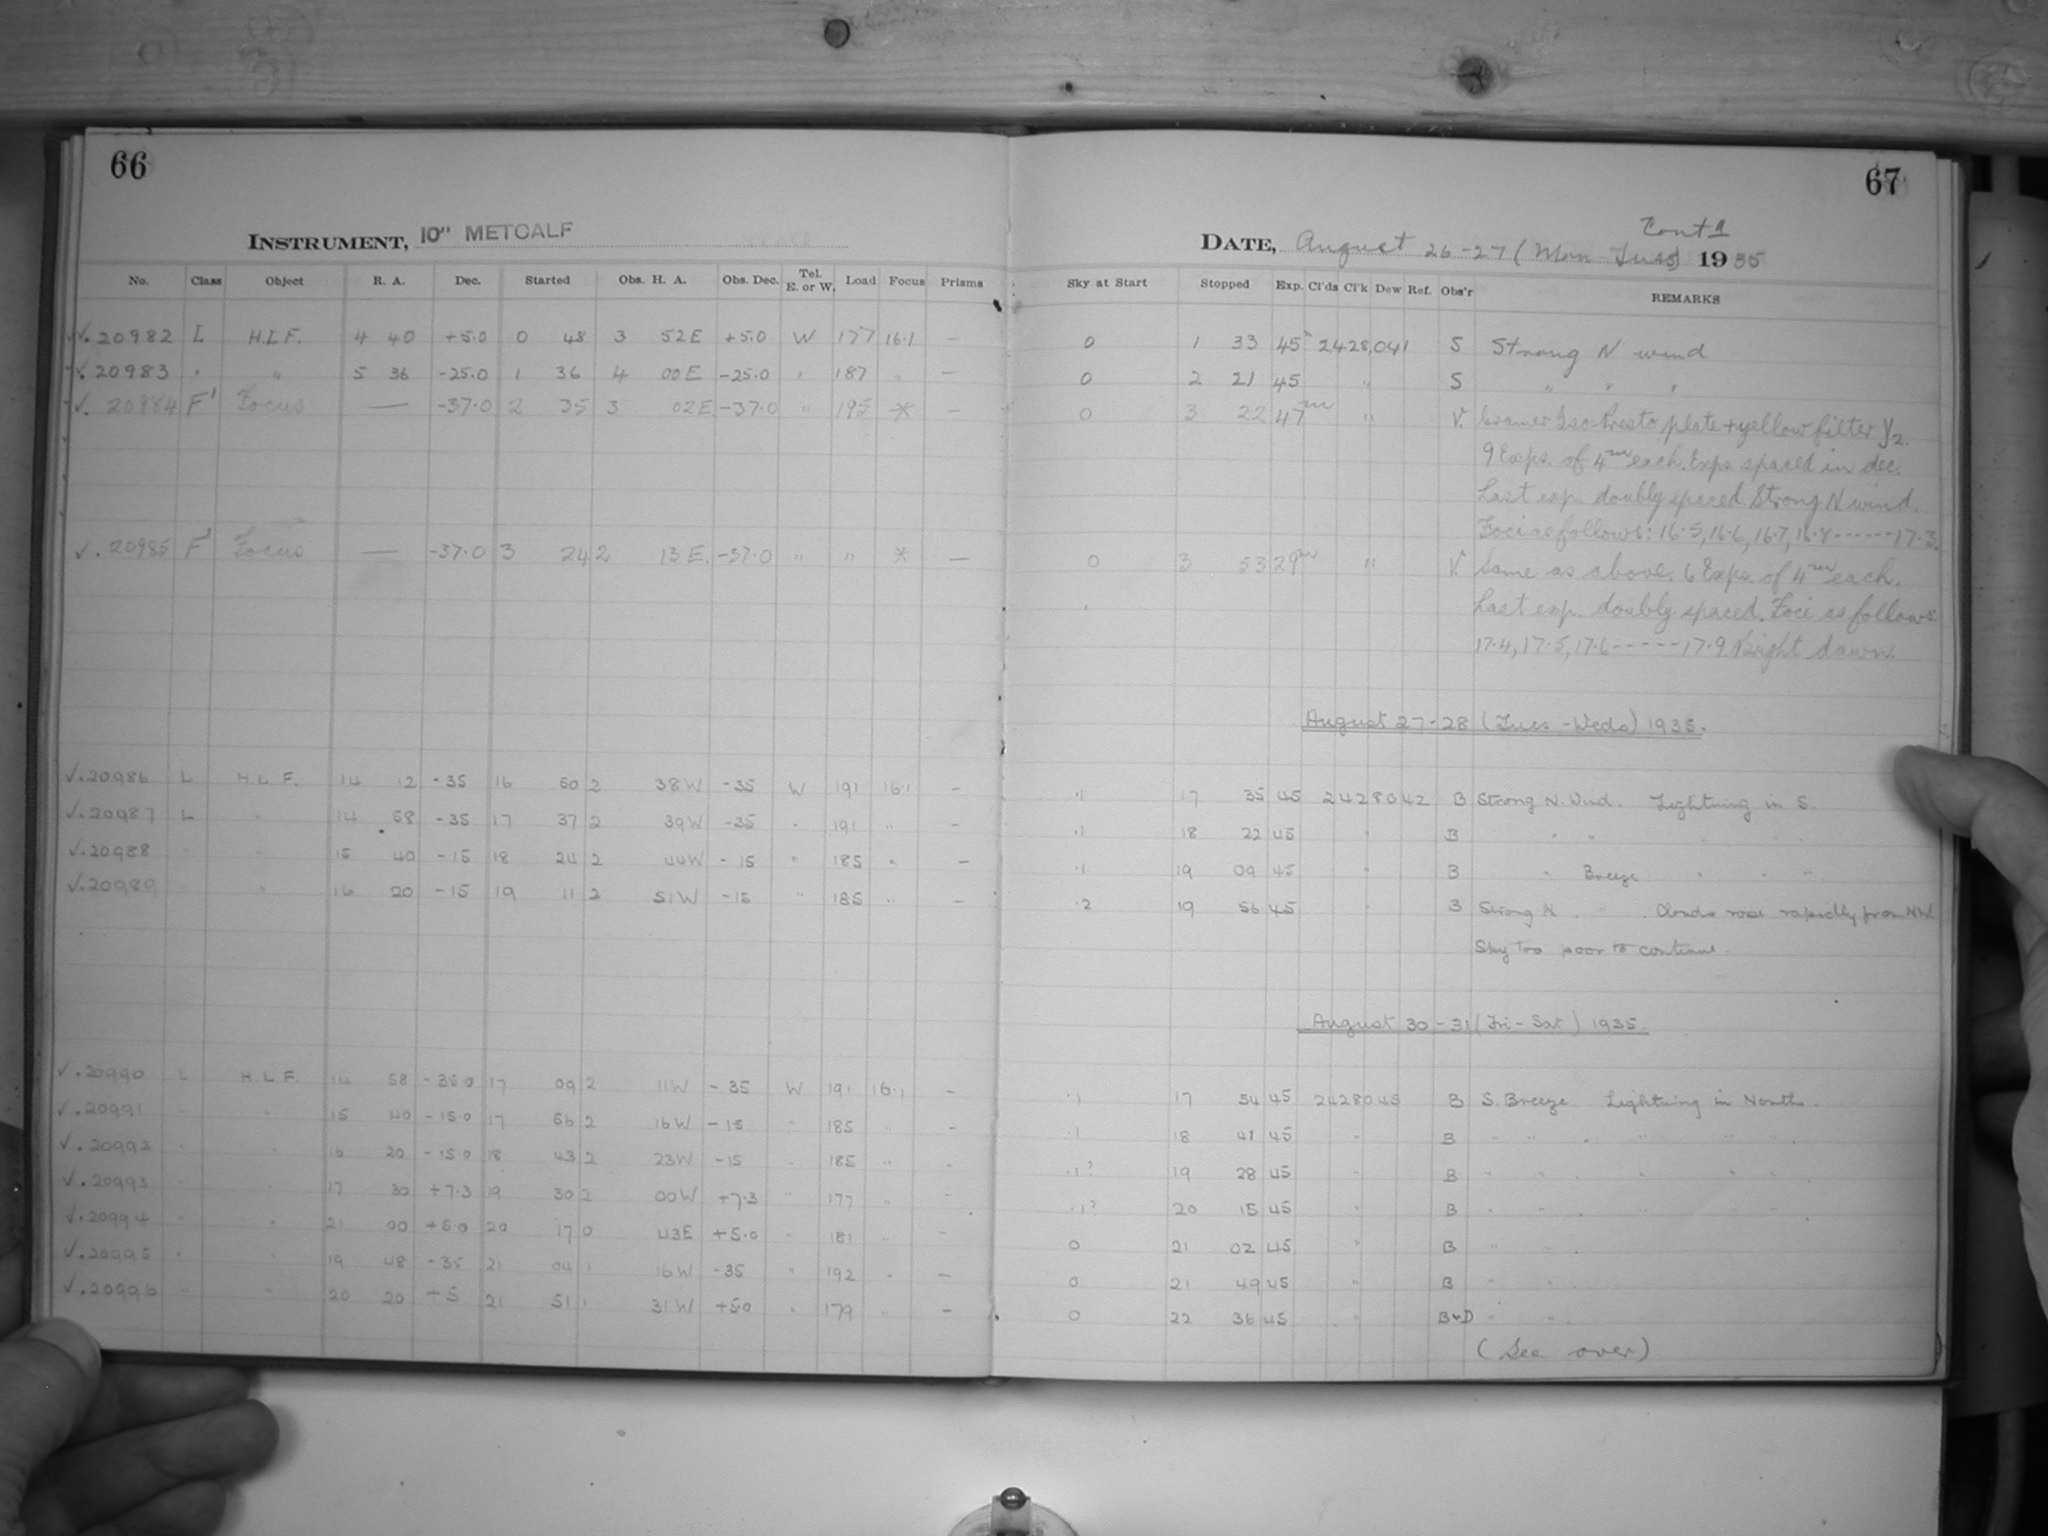 66
INSTRUMENT, 10" METCALF
No. Class Object R. A. Dec. Started Obs. H. A. Obs. Dec. Tel. E. or W. Load Focus Prisms
√. 20982 L H.L.F. 4 40 +5.0 0 48 3 52E +5.0 W 177 16.1 —
√. 20983 " " 5 36 -25.0 1 36 4 00E -25.0 " 187 " —
√. 20984 F' Focus — -37.0 2 35 3 02E -37.0 " 195 * —
√. 20985 F' Focus — -37.0 3 24 2 13E. -37.0 " " * —
√. 20986 L H.L.F. 14 12 -35 16 50 2 38W -35 W 191 16.1 —
√. 20987 L " 14 58 -35 17 37 2 39W -35 " 191 " —
√. 20988 " " 15 40 -15 18 24 2 44W -15 " 185 " —
√. 20989 " " 16 20 -15 19 11 2 51W -15 " 185 " —
√. 20990 L H.L.F. 14 58 -35.0 17 09 2 11W -35 W 191 16.1 —
√. 20991 " " 15 40 -15.0 17 56 2 16W -15 " 185 " —
√. 20992 " " 16 20 -15.0 18 43 2 23W -15 " 185 " -
√. 20993 " " 17 30 +7.3 19 30 2 00W +7.3 " 177 " -
√. 20994 " " 21 00 +5.0 20 17 0 43E +5.0 " 181 " -
√. 20995 " " 19 48 -35 21 04 1 16W -35 " 192 " —
√. 20996 " " 20 20 +5 21 51 1 31W +5.0 " 179 " —
67
Cont'd
DATE, August 26-27 (Mon-Tues) 1935
Sky at Start Stopped Exp. Cl'ds Cl'k Dew Ref. Obs'r REMARKS
0 1 33 45m 2428,041 S Strong N wind
0 2 21 45 " S " " "
0 3 22 47m " V. Cramer Iso-Presto plate + yellow filter Y2.
9 Exps. of 4m each. Exps. spaced in dec.
Last exp. doubly spaced. Strong N wind.
Foci as follows: 16.5, 16.6, 16.7, 16.8 ------ 17.3.
0 3 53 29m " V. Same as above. 6 Exps. of 4m each.
Last exp. doubly spaced. Foci as follows:
17.4, 17.5, 17.6 ----- 17.9 Bright dawn.
August 27-28 (Tues-Weds) 1935.
.1 17 35 45 2428042 B Strong N. Wind. Lightning in S.
.1 18 22 45 " B " " " " "
.1 19 09 45 " B " Breeze " " "
.2 19 56 45 " B Strong N. " . Clouds rose rapidly from NW.
Sky too poor to continue.
August 30-31 (Fri-Sat) 1935.
.1 17 54 45 2428045 B S. Breeze Lightning in North.
.1 18 41 45 " B " " " " "
.1? 19 28 45 " B " " " " "
.1? 20 15 45 " B " " " " "
0 21 02 45 " B " "
0 21 49 45 " B " "
0 22 36 45 " B+D " "
(See over)